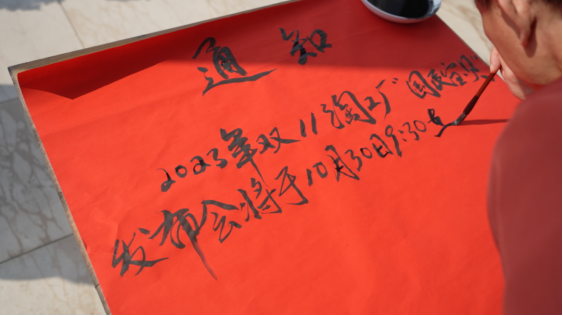 通知
2023年双11淘工厂国民宝贝
发布会将于10月30日9:30在